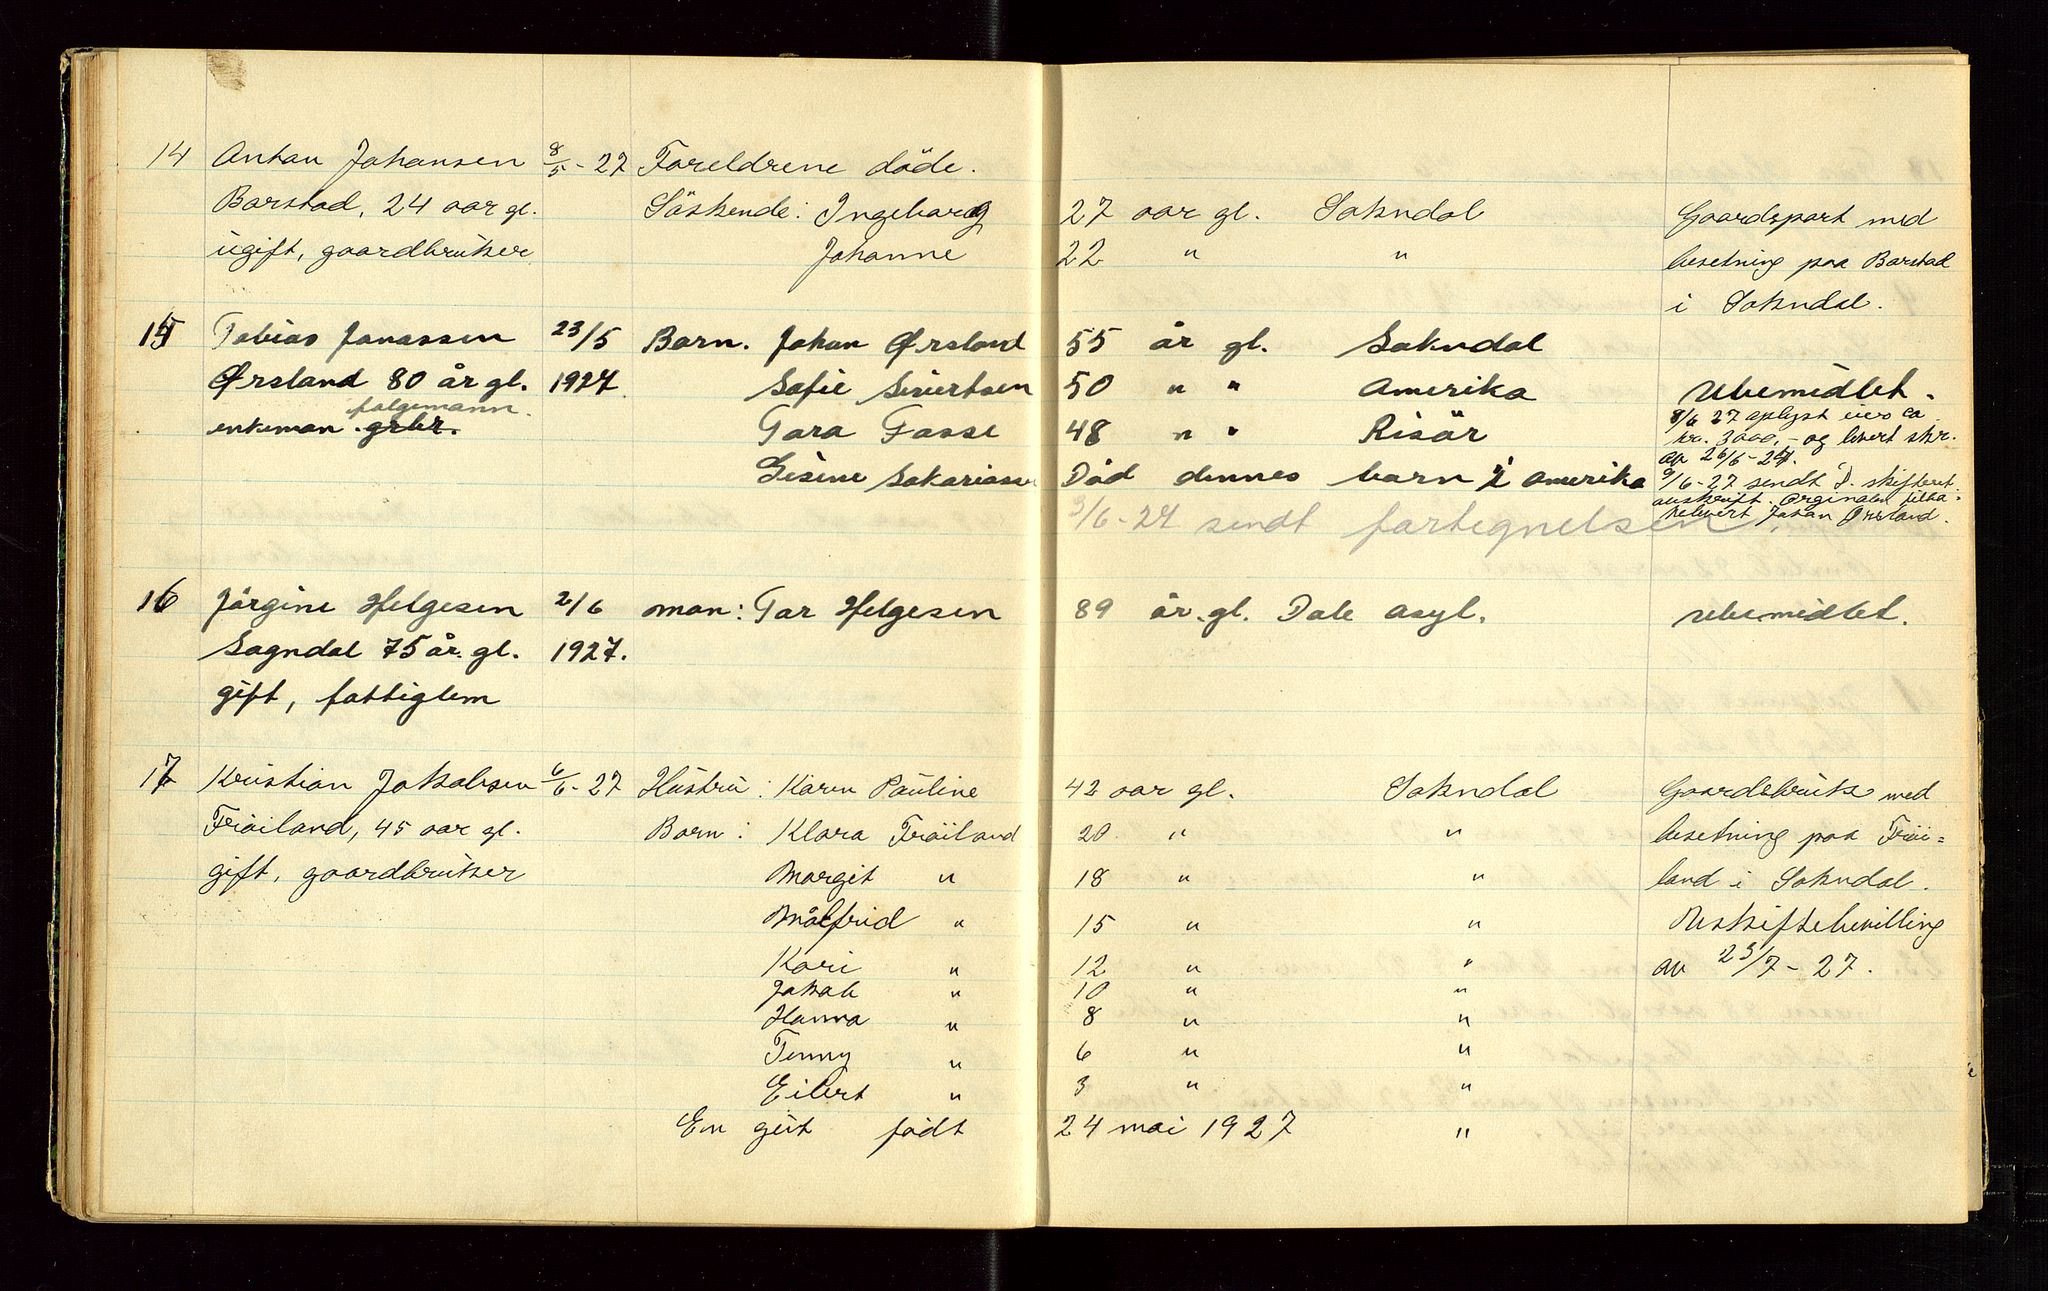 14 Anton Johansen 8/5 - 27 Foreldrene döde.
Barstad, 24 aar gl. Söskende: Ingeborg 27 aar gl. Sokndal Gaardspart med
ugift, gaardbruker Johanne 22 " " besetning paa Barstad
i Sokndal.
15 Tobias Jonassen 23/5 Barn. Johan Ørsland 55 år gl. Sokndal
Ørsland 80 år gl. 1927. Sofie Sivertsen 50 " " Amerika Ubemidlet.
folgemann.
enkeman. grbr. Tora Fasse 48 " " Risör 8/6 27 oplyst eies ca
kr. 3000,- og levert skr.
av 26/6-27.
Gisine Sakariassen Död dennes barn i Amerika 9/6-27 sendt D. skifteret
avskrift. Orginalen tilba-
9/6-27 sendt fortegnelsen. kelevert Johan Ørsland.
16 Jörgine Helgesen 2/6 man: Tor Helgesen 89 år. gl. Dale asyl. Ubemidlet.
Sogndal 75 år. gl. 1927.
gift, fattiglem
17 Kristian Jakobsen 6/6 - 27 Hustru: Karen Pauline 42 aar gl. Sokndal Gaardsbruk med
Fröiland, 45 aar gl. Barn: Klara Fröiland 20 " " besetning paa Fröi-
gift, gaardbruker Margit " 18 " " land i Sokndal.
Målfrid " 15 " " Uskiftebevilling
Kari " 12 " " av 23/7 - 27.
Jakob " 10 " "
Hanna " 8 " "
Tenny " 6 " "
Eilert " 3 " "
En gut födt 24 mai 1927 "